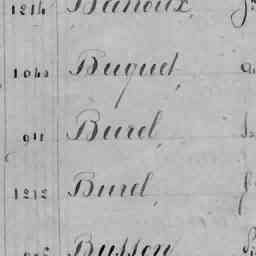 1214 Banoux,
1040 Buquet,
911 Burel,
1212 Burel,
Busson